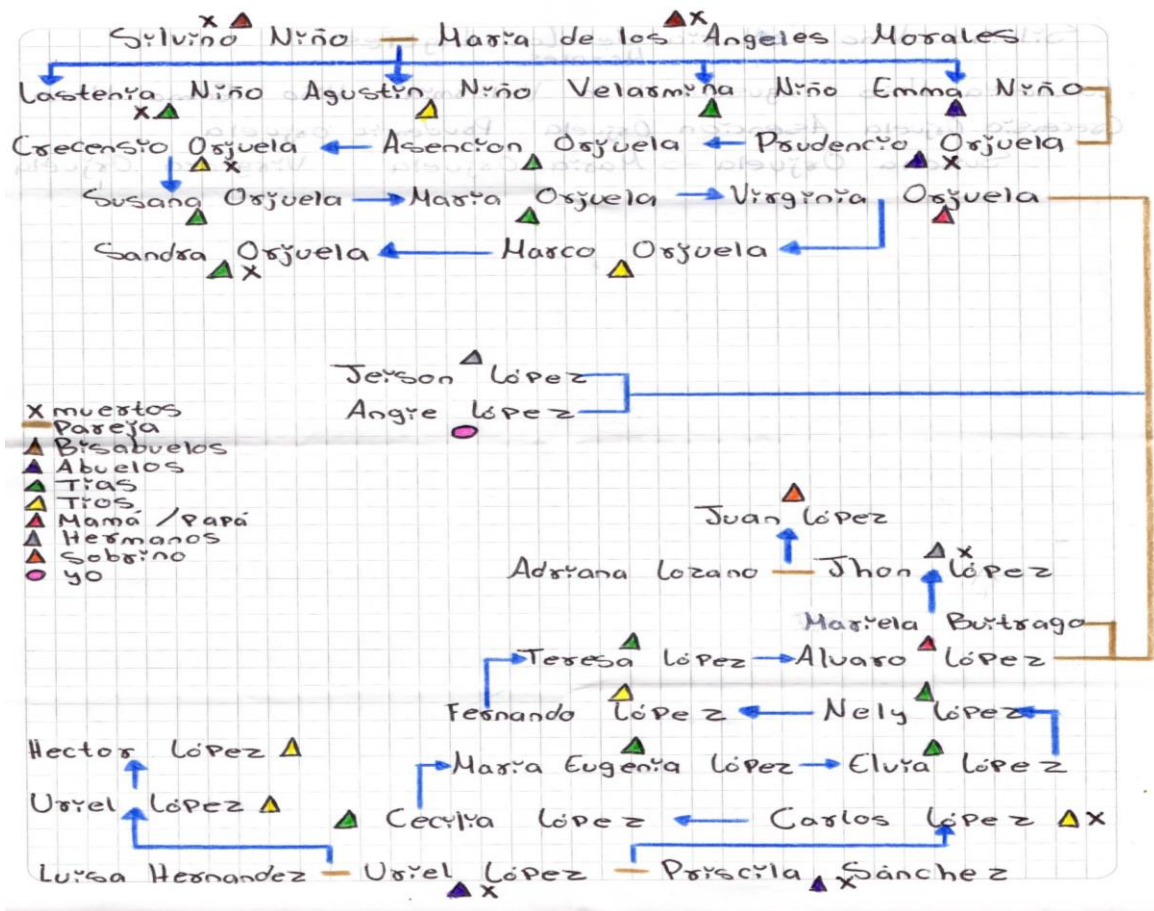 Silvino Niño — María de los Angeles Morales
Lastenia Niño Agustín Niño Velarmina Niño Emma Niño
Crecensio Orjuela Asencion Orjuela Prudencio Orjuela
Susana Orjuela María Orjuela Virginia Orjuela
Sandra Orjuela Marco Orjuela
Jeison López
Angie López
x muertos
Pareja
Bisabuelos
Abuelos
Tías
Tíos
Mamá / Papá
Hermanos
Sobrino
yo
Juan López
Adriana Lozano — Jhon López
Mariela Buitrago
Teresa López Alvaro López
Fernando López Nely López
Hector López
María Eugenia López Elvia López
Uriel López
Cecilia López Carlos López
Luisa Hernandez — Uriel López — Priscila Sánchez